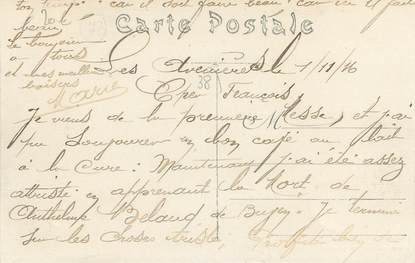 temps : car il doit faire beau car ici il fait
beau
le bonjour
à tous
et mes meilleurs
baisers
Marie
Carte Postale
Les Avenières le 1/11/16
Cher François,
Je viens de la première Messe, et j'ai
pu un bon café au lait
à la Cure : Maintenant j'ai été assez
attristé en apprenant la Mort de
Anthelme Belaud de Je termine
sur les choses tristes,